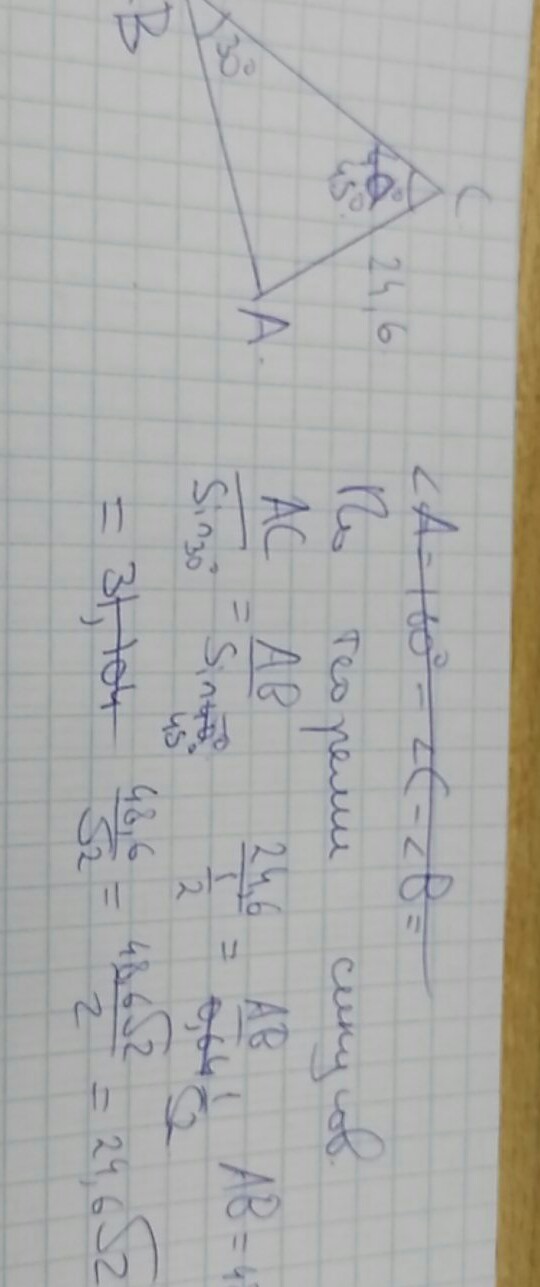 B
30°
C
45°
24,6
A.
<A=180°-<C-<B=
По теореми синусов.
AC/Sin30° = AB/Sin45° 24,6/(1/2) = AB/(1/√2) AB=
= 31,104 48,6/√2 = 48,6√2/2 = 24,6√2